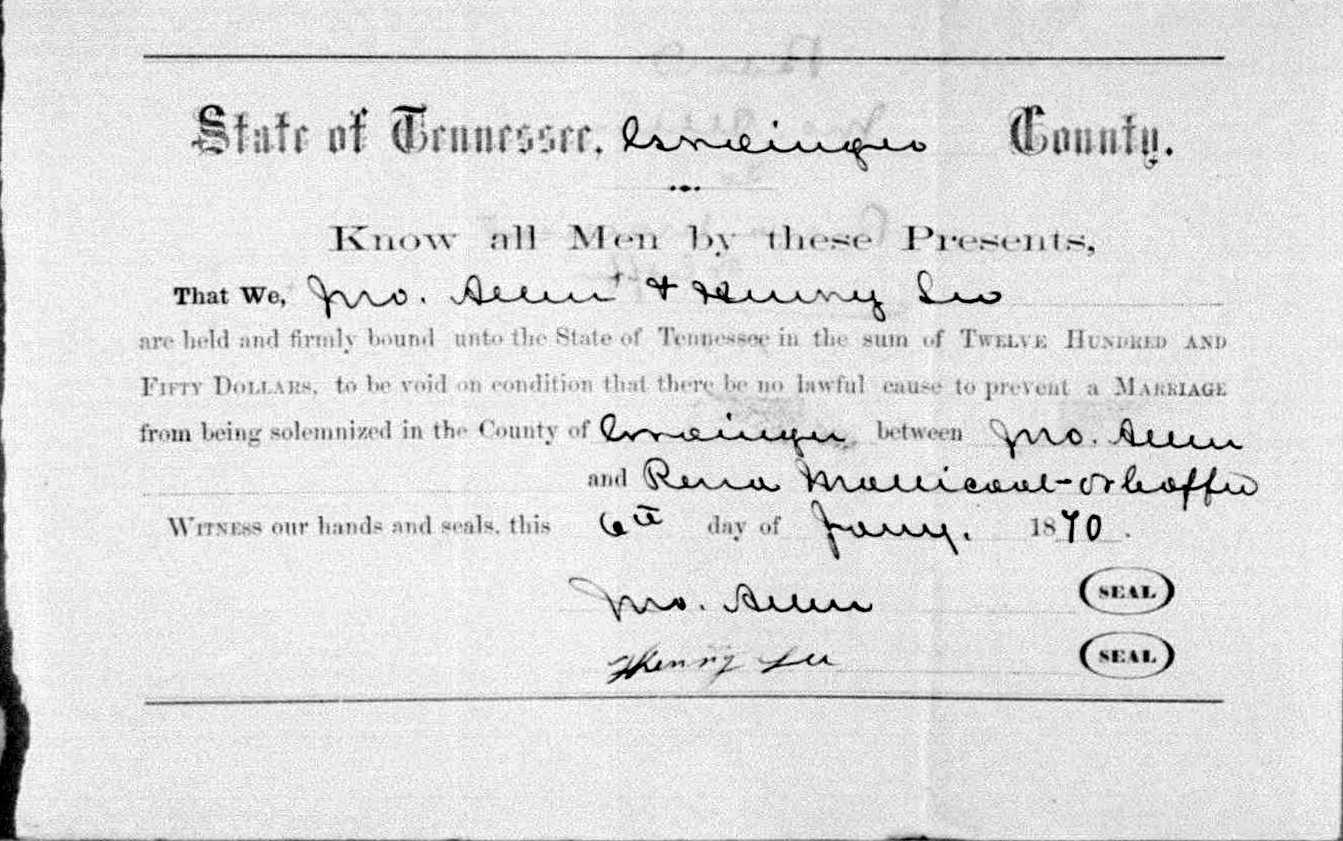 State of Tennessee, Grainger County.
Know all Men by these Presents,
That We, Jno. Allen & Henry Lee
are held and firmly bound unto the State of Tennessee in the sum of TWELVE HUNDRED AND
FIFTY DOLLARS, to be void on condition that there be no lawful cause to prevent a MARRIAGE
from being solemnized in the County of Grainger between Jno. Allen
and Rena Mallicoat - or
WITNESS our hands and seals, this 6th day of Jany. 1870.
Jno. Allen SEAL
Henry Lee SEAL